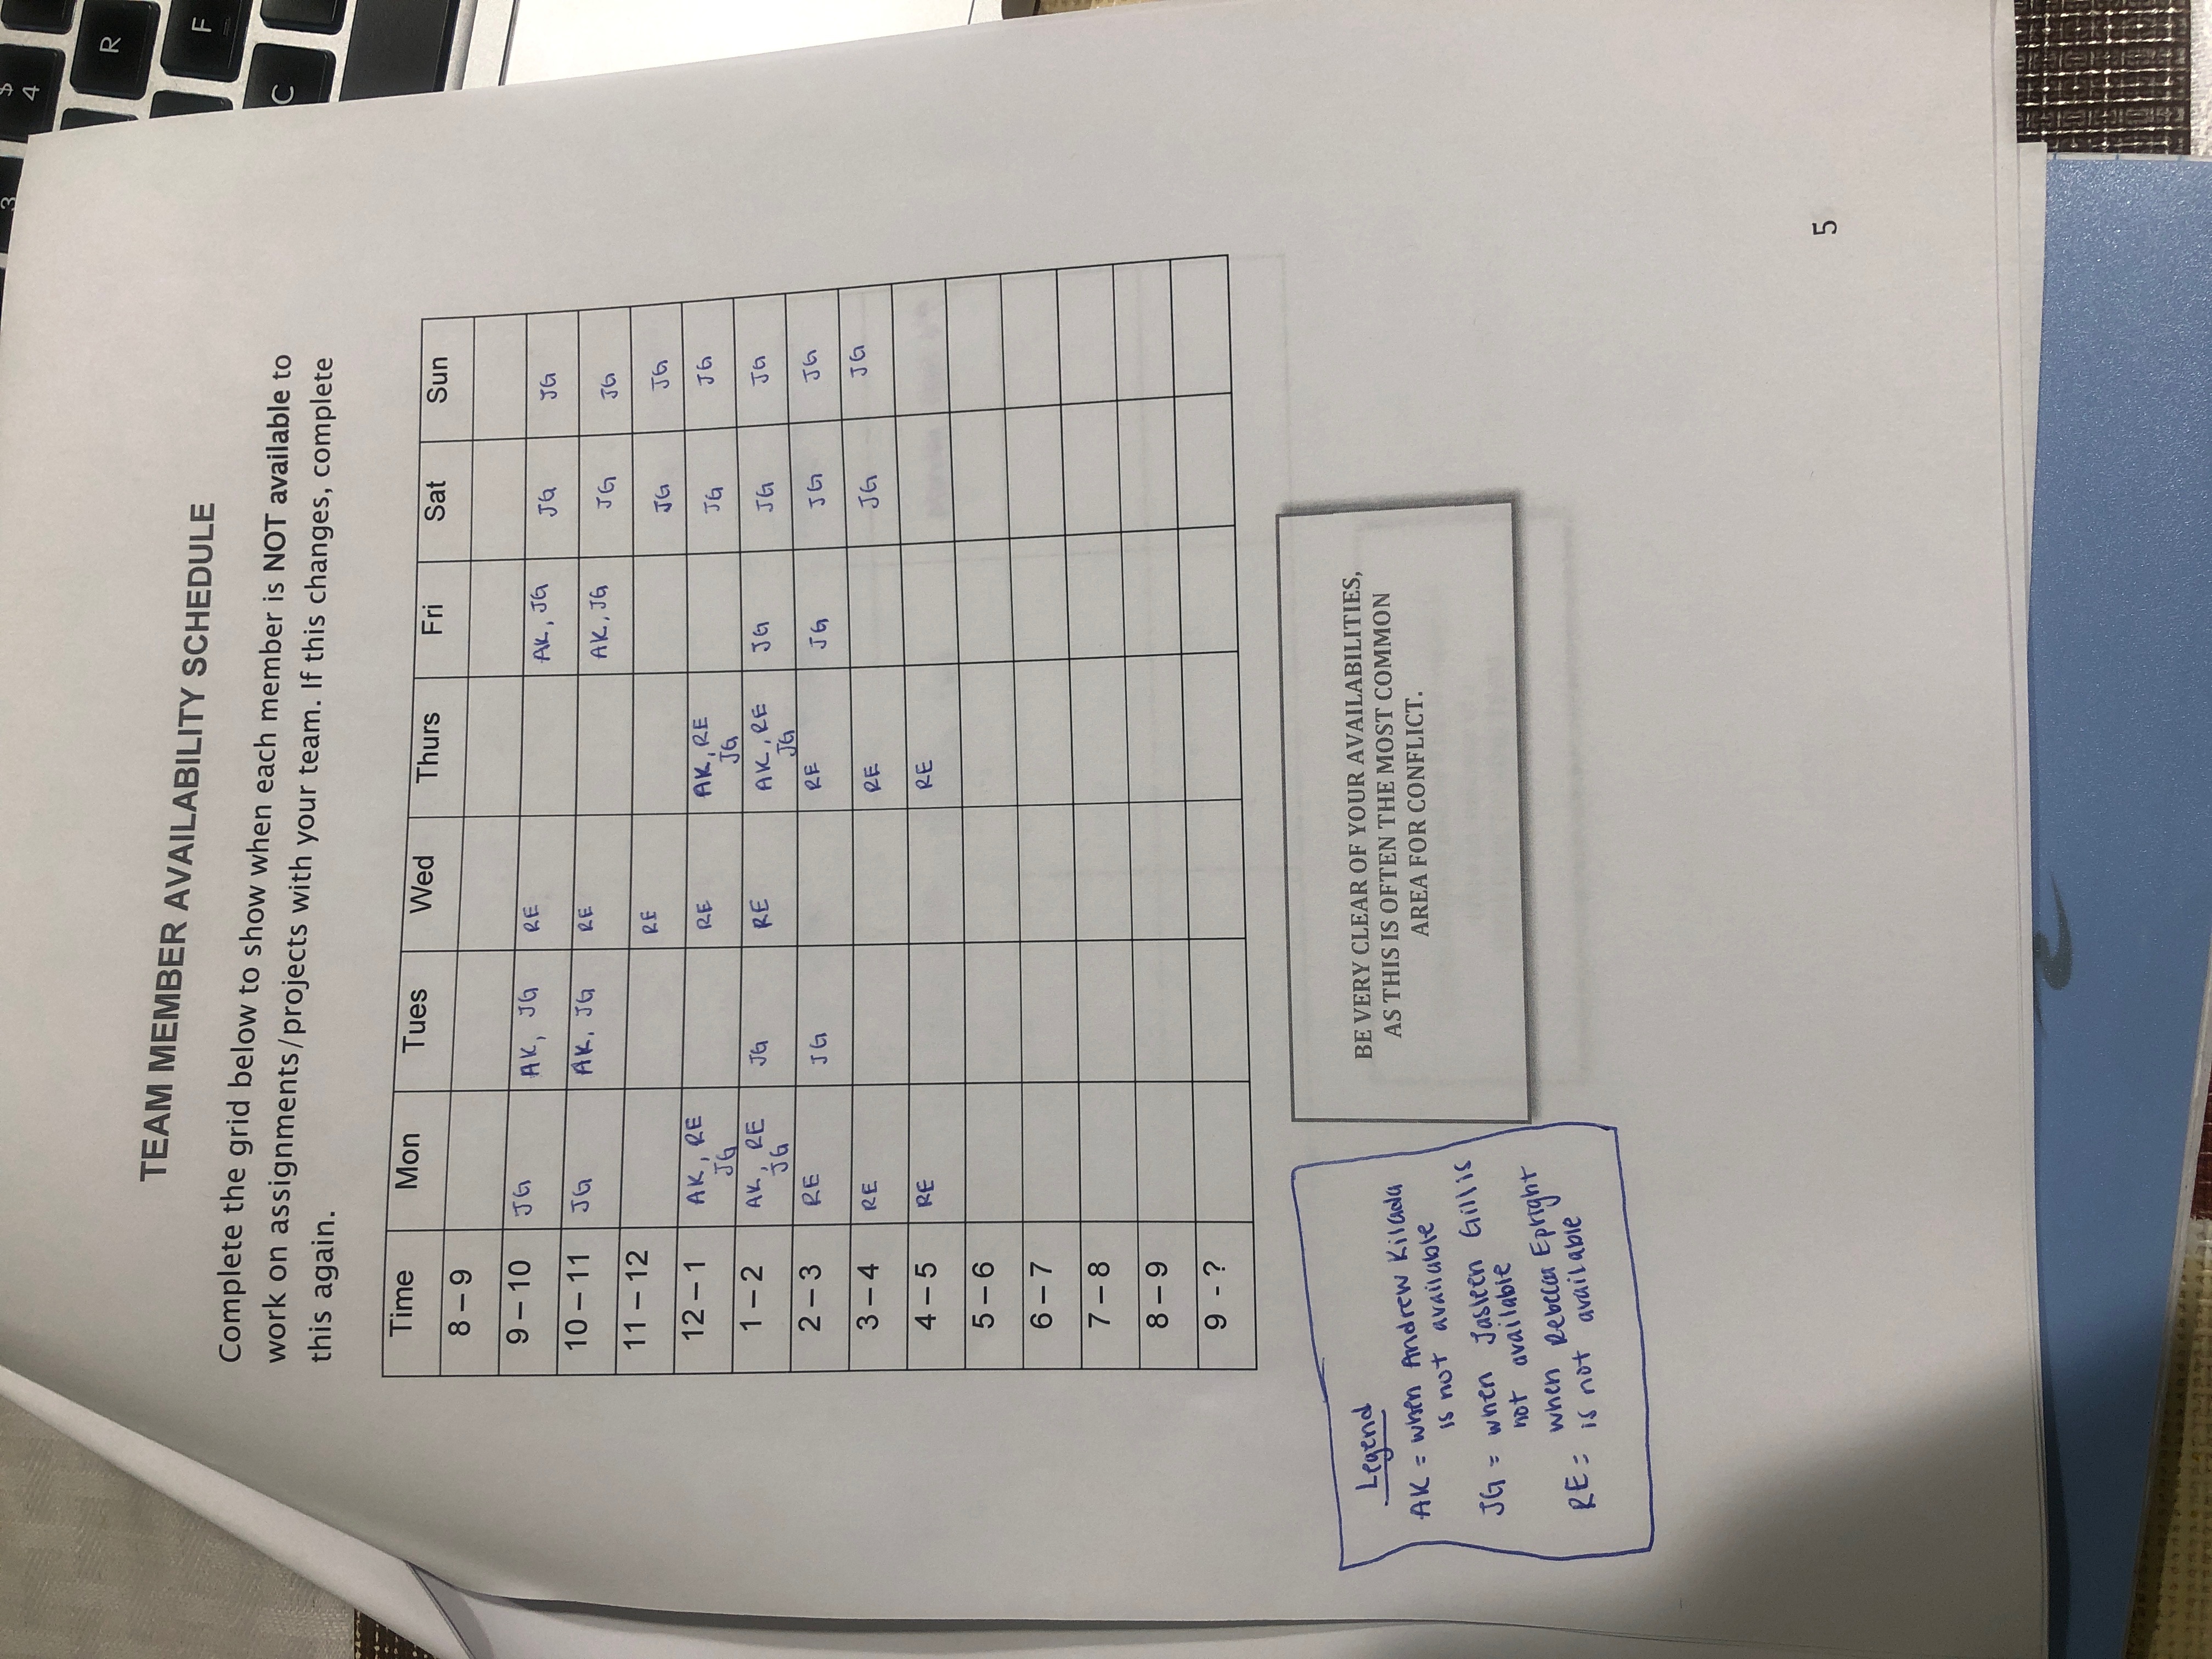 3 $
4
R
F
C
TEAM MEMBER AVAILABILITY SCHEDULE
Complete the grid below to show when each member is NOT available to
work on assignments/projects with your team. If this changes, complete
this again.
Time Mon Tues Wed Thurs Fri Sat Sun
8 – 9
9 – 10 JG AK, JG RE AK, JG JG JG
10 – 11 JG AK, JG RE AK, JG JG JG
11 – 12 RE JG JG
12 – 1 AK, RE JG RE AK, RE JG JG JG
1 – 2 AK, RE JG JG RE AK, RE JG JG JG JG
2 – 3 RE JG RE JG JG JG
3 – 4 RE RE JG JG
4 – 5 RE RE
5 – 6
6 – 7
7 – 8
8 – 9
9 - ?
Legend
AK = when Andrew Kilada
is not available
JG = when Jasleen Gill is
not available
when Rebecca Epright
RE = is not available
BE VERY CLEAR OF YOUR AVAILABILITIES,
AS THIS IS OFTEN THE MOST COMMON
AREA FOR CONFLICT.
5